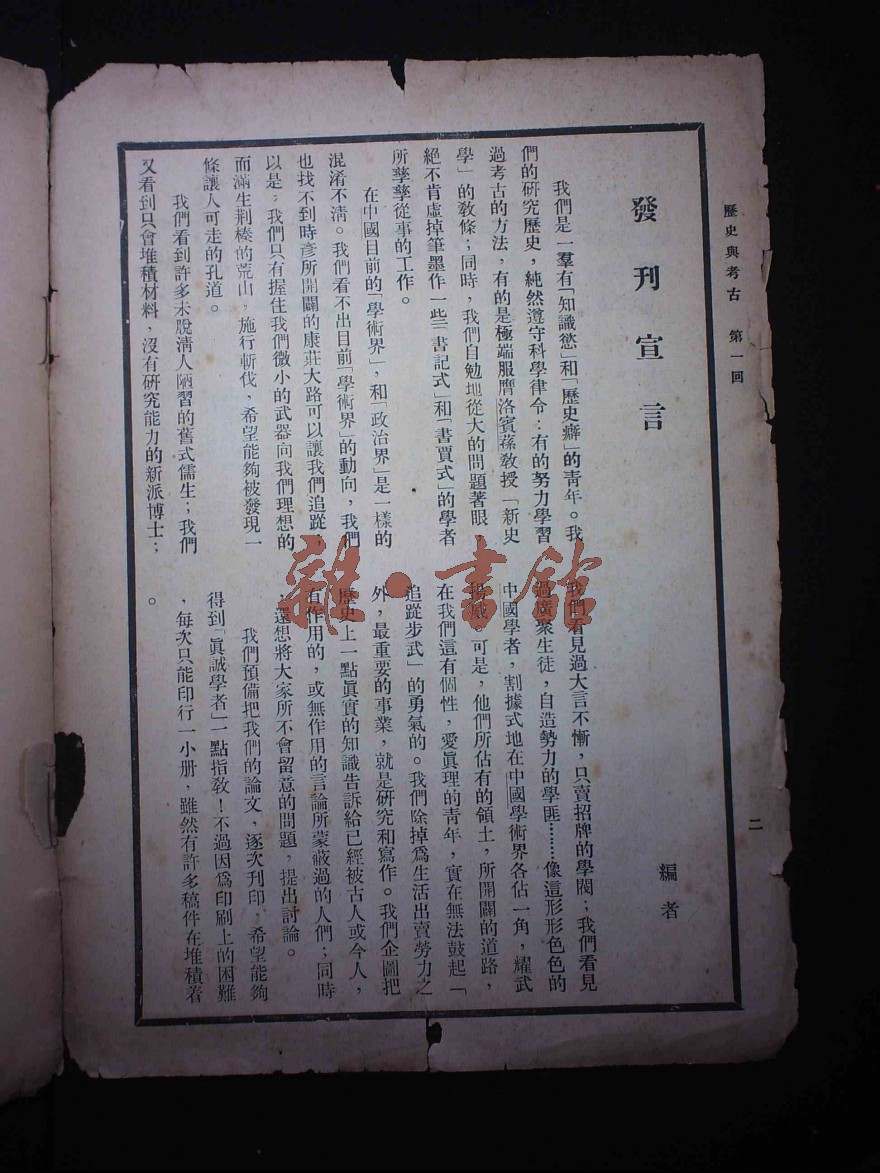 歷史與考古 第一回
二
發刊宣言
編者
我們是一羣有「知識慾」和「歷史癖」的青年。我
們的研究歷史，純然遵守科學律令：有的努力學習
過考古的方法，有的是極端服膺洛賓蓀教授「新史
學」的教條；同時，我們自勉地從大的問題著眼，
絕不肯虛掉筆墨作一些「書記式」和「書賈式」的學者
所孳孳從事的工作。
在中國目前的「學術界」，和「政治界」是一樣的
混淆不清。我們看不出目前「學術界」的動向，我們
也找不到時彥所開闢的康莊大路可以讓我們追蹤；
以是，我們只有握住我們微小的武器向我們理想的
而滿生荆榛的荒山，施行斬伐，希望能夠被發現一
條讓人可走的孔道。
我們看到許多未脫清人陋習的舊式儒生；我們
又看到只會堆積材料，沒有研究能力的新派博士；
我們看見過大言不慚，只賣招牌的學閥；我們看見
過廣衆生徒，自造勢力的學匪………像這形形色色的
中國學者，割據式地在中國學術界各佔一角，耀武
揚威。可是，他們所佔有的領土，所開闢的道路，
在我們這有個性，愛眞理的青年，實在無法鼓起「
追蹤步武」的勇氣的。我們除掉爲生活出賣勞力之
外，最重要的事業，就是研究和寫作。我們企圖把
歷史上一點眞實的知識告訴給已經被古人或今人，
有作用的，或無作用的言論所蒙蔽過的人們；同時
，還想將大家所不會留意的問題，提出討論。
我們預備把我們的論文，逐次刊印，希望能夠
得到「眞誠學者」一點指教！不過因爲印刷上的困難
，每次只能印行一小册，雖然有許多稿件在堆積着
。
雜·書館